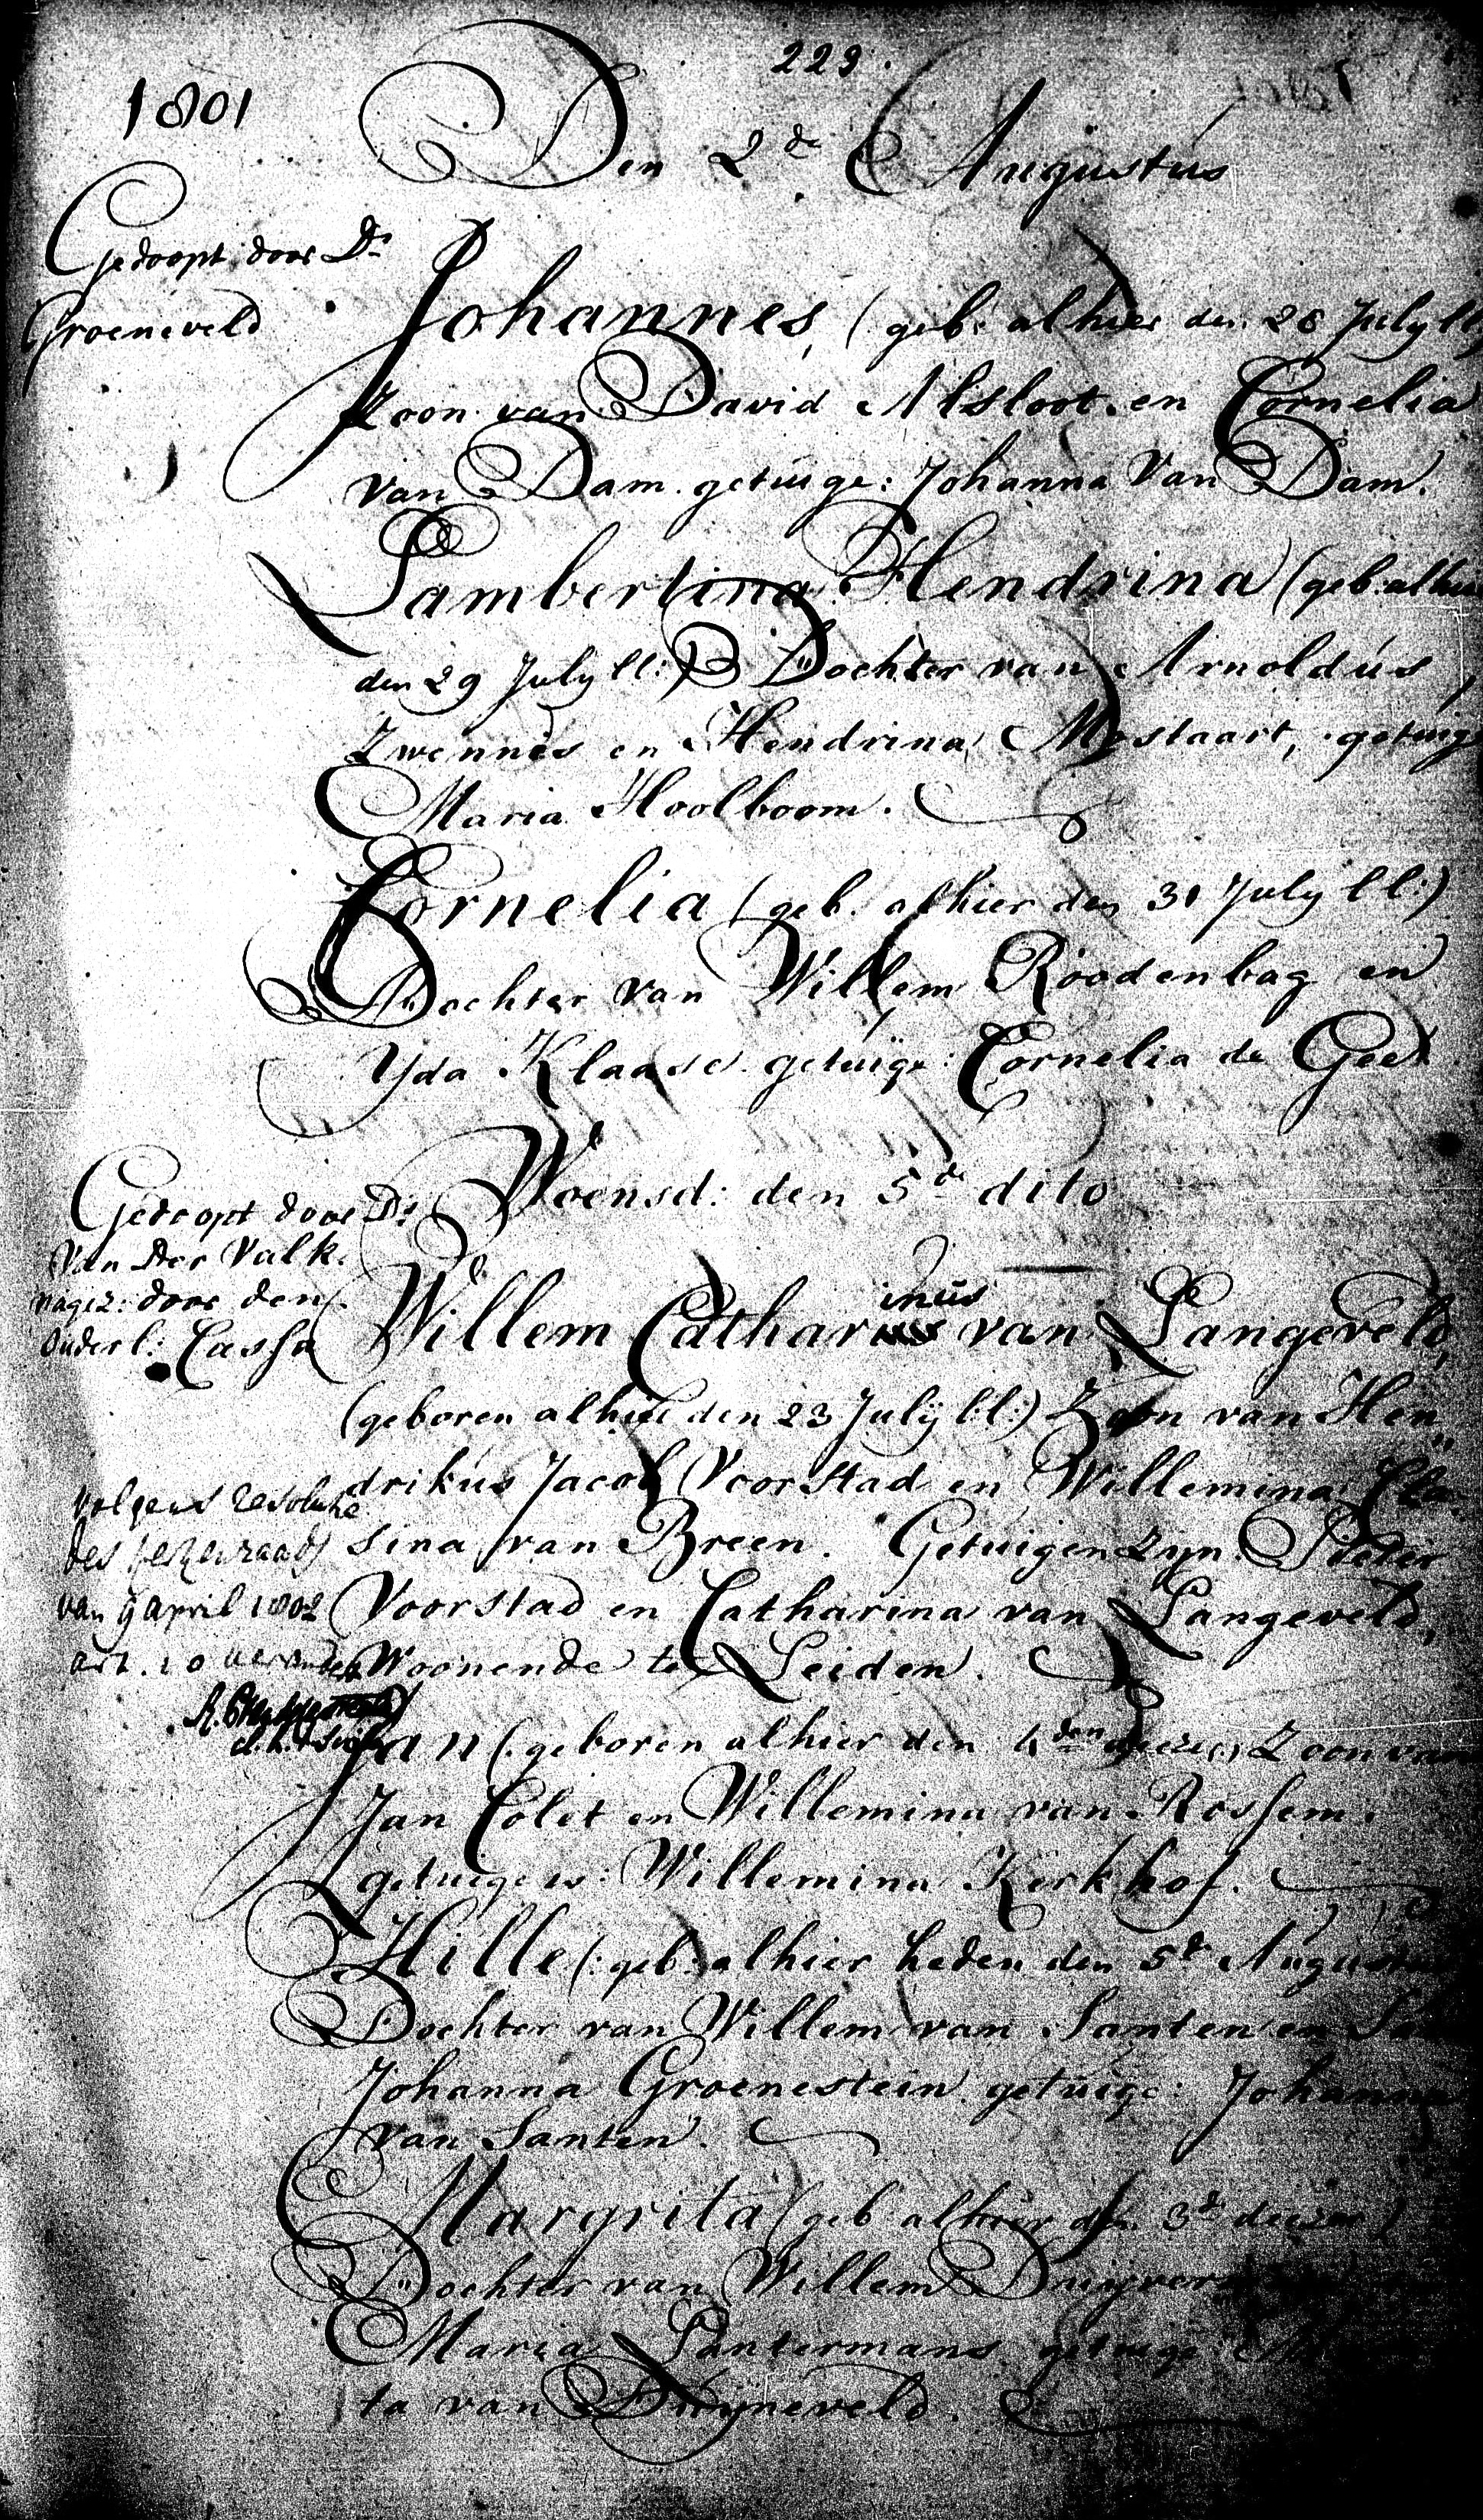 229.
1801
Den 2de Augustus
Gedoopt door Ds
Groeneveld
Johannes, (geb: alhier den 26 July ll
Zoon van David Alsloot en Cornelia
van Dam. getuige: Johanna van Dam.
Lambertina Hendrina (geb: alhier
den 29 July ll:) Dochter van Arnoldus
Zwennes en Hendrina Mostaart, getuig
Maria Hoolboom.
Cornelia (geb. alhier den 31 July ll:)
Dochter van Willem Roodenbag en
Yda Klaase. getuige: Cornelia de Gee
Woensd: den 5de dito
Gedoopt door Ds
Van Der Valk.
nagez: door den
Ouderl: Cassa
Willem Catharinus van Langeveld,
(geboren alhier den 23 Julij l:l:) Zoon van Hen„
drikus Jacob Voorstad en Willemina Cla„
sina van Breen. Getuigen zyn: Pieter
Voorstad en Catharina van Langeveld,
Woonende te Leiden.
volgens resolutie
des kerkenraads
van 9 april 1802
art. 10 verandert
Jan (:geboren alhier den 4den deezer) Zoon van
Jan Colet en Willemina van Rossem.
getuige is: Willemina Kerkhof.
Hille (:geb: alhier heden den 5de Augustus
Dochter van Willem van Santen en
Johanna Groenestein. getuige: Johanna
van Santen.
Margrita (geb: alhier den 3de deezer)
Dochter van Willem
Maria Lantermans getuige:
ta van Duyneveld.